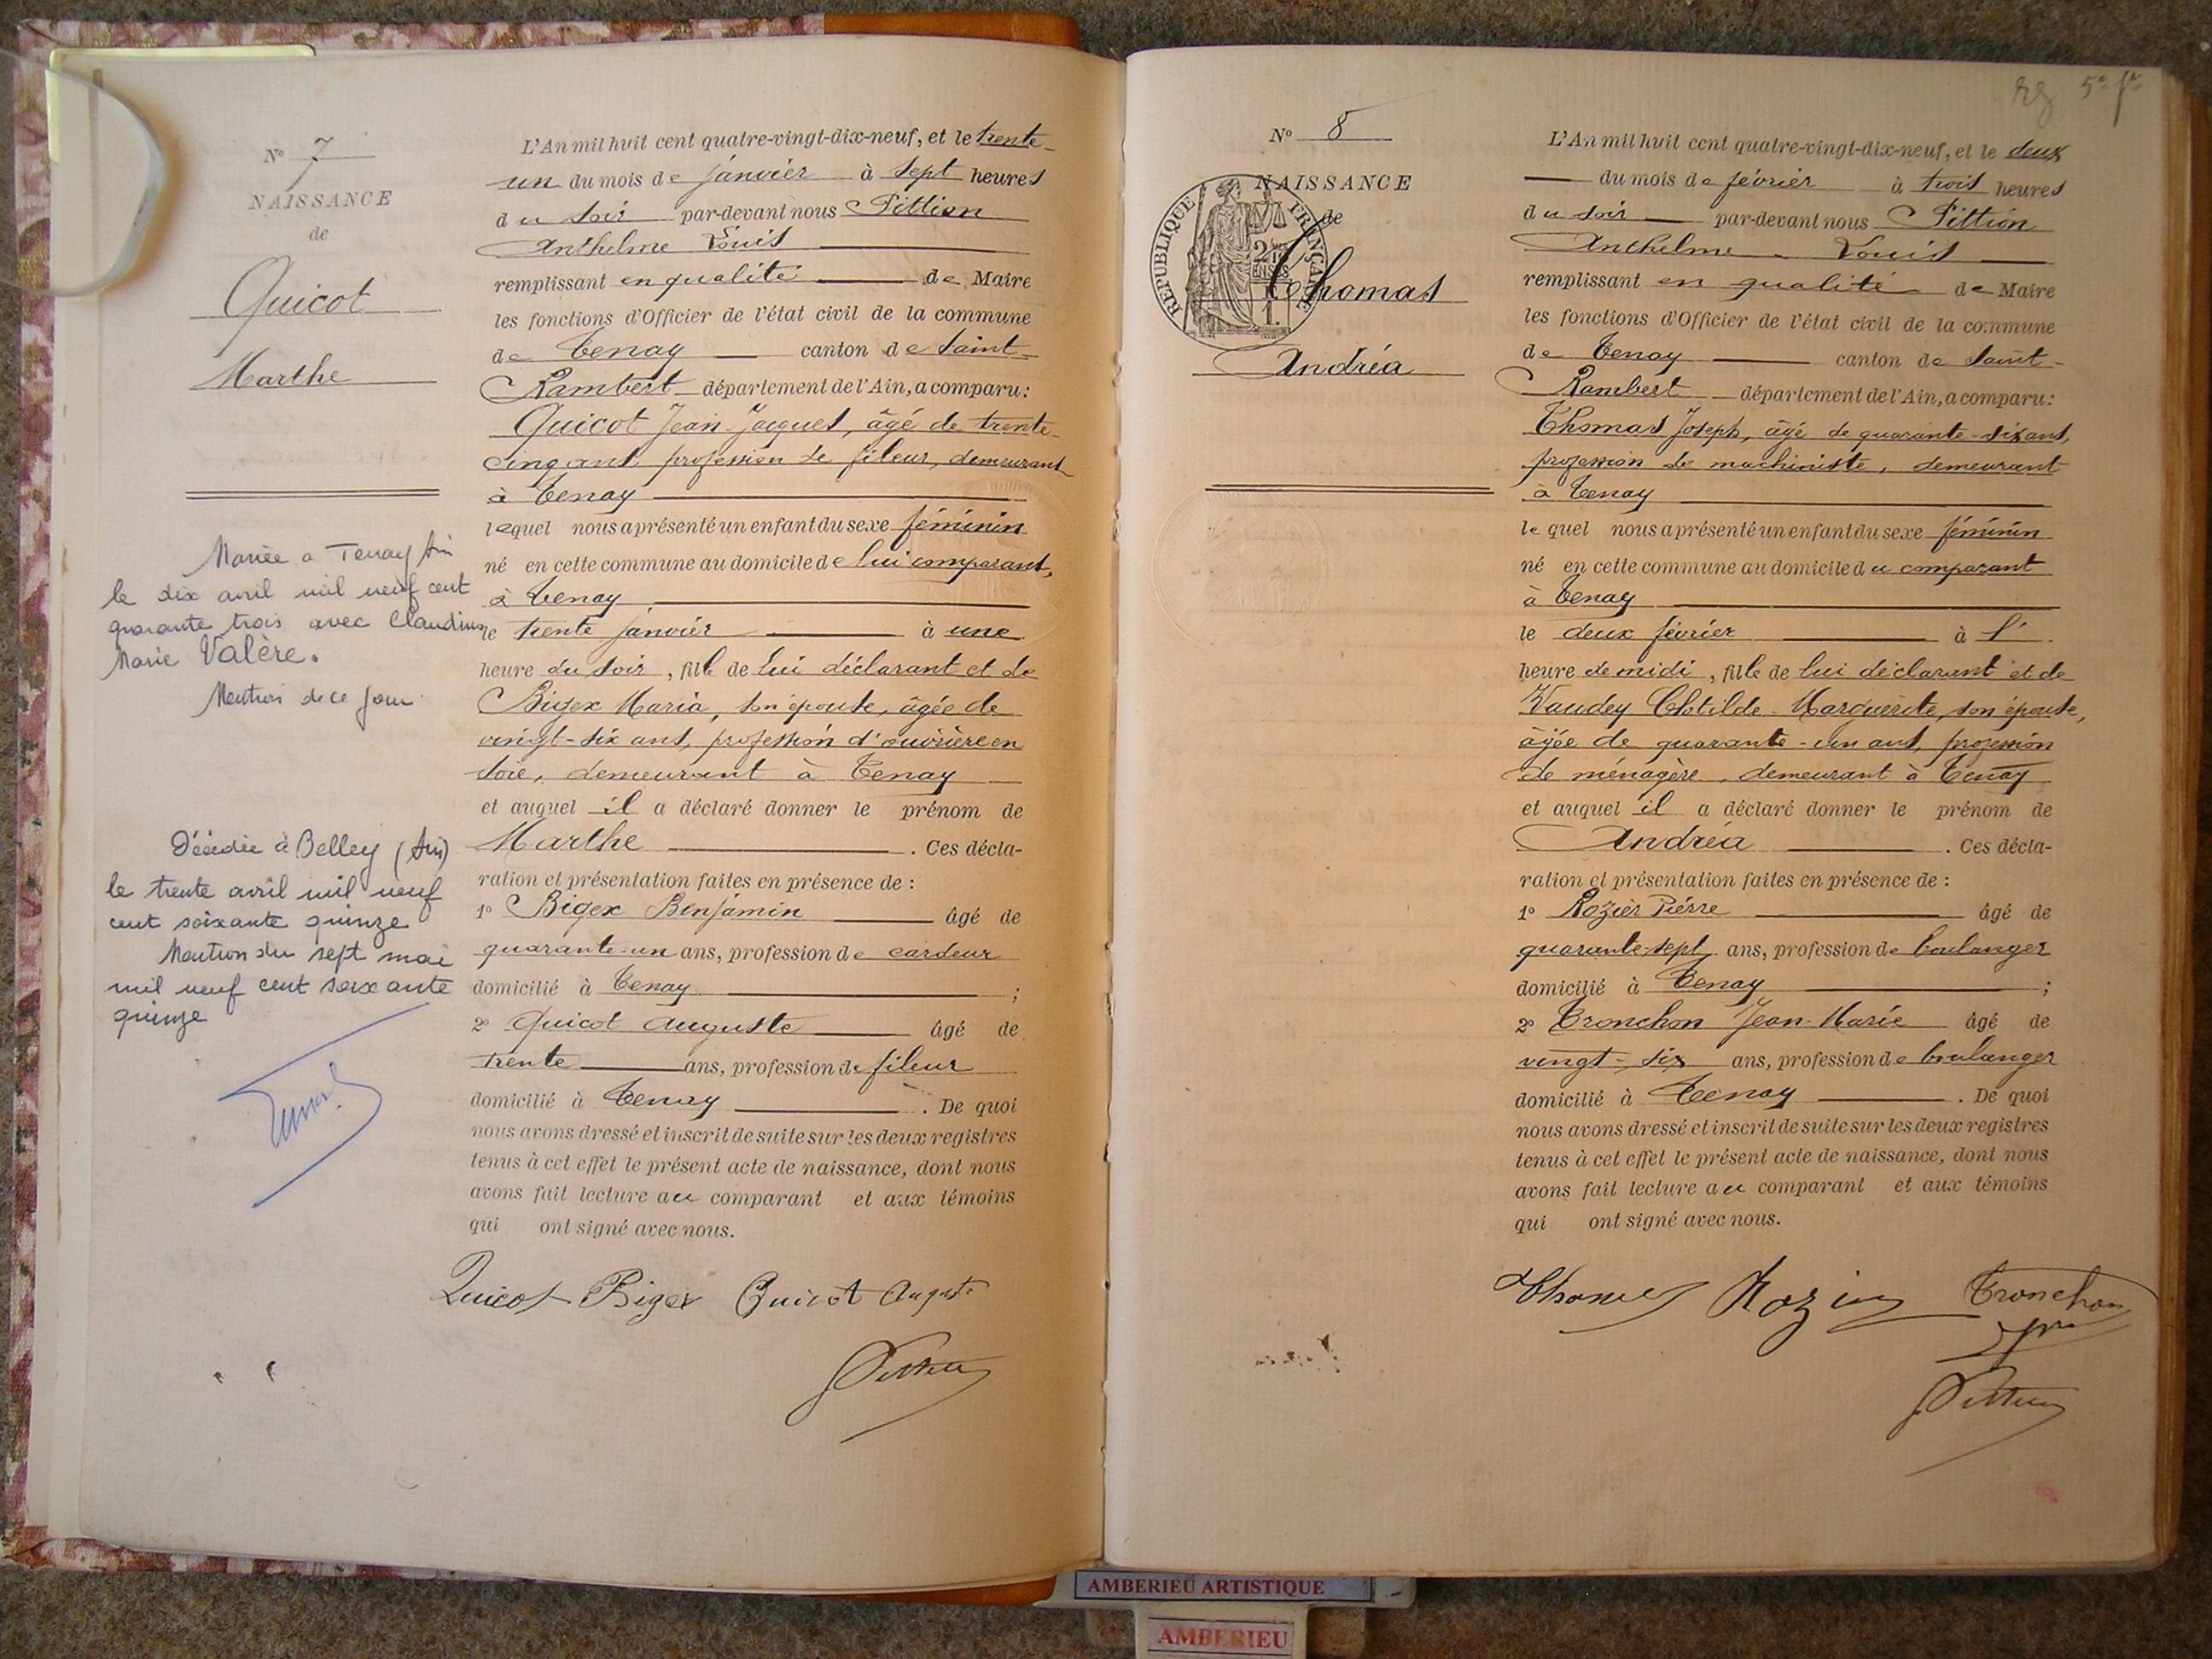 N° 7
NAISSANCE
de
Quicot
Marthe
Mariée a Tenay Ain
le dix avril mil neuf cent
quarante trois avec Claudius
Marie Valère.
Mention de ce jour
Décédée à Belley (Ain)
le trente avril mil neuf
cent soixante quinze
Mention du sept mai
mil neuf cent soixante
quinze
L'An mil huit cent quatre-vingt-dix-neuf, et le trente-
un du mois de janvier à sept heures
du soir par-devant nous Pittion
Anthelme Louis
remplissant en qualité de Maire
les fonctions d'Officier de l'état civil de la commune
de Tenay canton de Saint-
Rambert département de l'Ain, a comparu:
Quicot Jean-Jacques, âgé de trente-
cinq ans, profession de fileur, demeurant
à Tenay
lequel nous a présenté un enfant du sexe féminin
né en cette commune au domicile de lui comparant,
à Tenay
le trente janvier à une
heure du soir, fille de lui déclarant et de
Bigex Maria, son épouse, âgée de
vingt-six ans, profession d'ouvrière en
soie, demeurant à Tenay
et auquel il a déclaré donner le prénom de
Marthe . Ces décla-
ration et présentation faites en présence de :
1° Bigex Benjamin âgé de
quarante-un ans, profession de cardeur
domicilié à Tenay ;
2° Quicot Auguste âgé de
trente ans, profession de fileur
domicilié à Tenay . De quoi
nous avons dressé et inscrit de suite sur les deux registres
tenus à cet effet le présent acte de naissance, dont nous
avons fait lecture au comparant et aux témoins
qui ont signé avec nous.
Quicot Bigex Quicot Auguste
Pittion
5e ft
N° 8
NAISSANCE
de
RÉPUBLIQUE FRANÇAISE
Thomas
Andréa
L'An mil huit cent quatre-vingt-dix-neuf, et le deux
du mois de février à trois heures
du soir par-devant nous Pittion
Anthelme - Louis
remplissant en qualité de Maire
les fonctions d'Officier de l'état civil de la commune
de Tenay canton de Saint-
Rambert département de l'Ain, a comparu:
Thomas Joseph, âgé de quarante-six ans,
profession de machiniste, demeurant
à Tenay
lequel nous a présenté un enfant du sexe féminin
né en cette commune au domicile du comparant
à Tenay
le deux février à l'
heure de midi, fille de lui déclarant et de
Vaudey Clotilde-Marguerite, son épouse,
âgée de quarante-un ans, profession
de ménagère, demeurant à Tenay
et auquel il a déclaré donner le prénom de
Andréa . Ces décla-
ration et présentation faites en présence de :
1° Rozier Pierre âgé de
quarante-sept ans, profession de boulanger
domicilié à Tenay ;
2° Tronchon Jean-Marie âgé de
vingt-six ans, profession de boulanger
domicilié à Tenay . De quoi
nous avons dressé et inscrit de suite sur les deux registres
tenus à cet effet le présent acte de naissance, dont nous
avons fait lecture au comparant et aux témoins
qui ont signé avec nous.
Thomas Rozier Tronchon
Pittion
AMBERIEU ARTISTIQUE
AMBERIEU